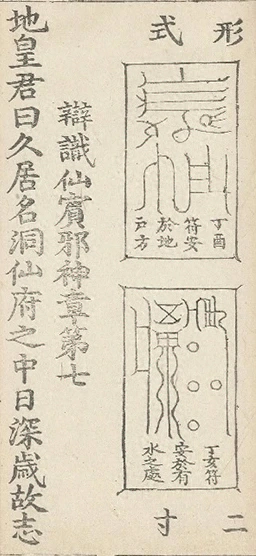 形式
丁酉
符安
於地
戸方
丁亥符
安於有
水之處
二寸
辯識仙賓邪神章第七
地皇君曰久居名洞仙府之中日深歲故志